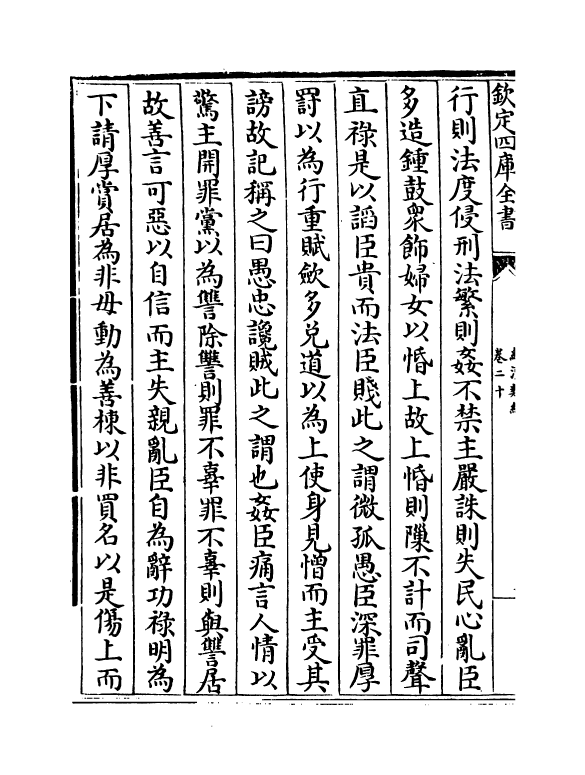 欽定四庫全書
卷二十
行則法度侵刑法繁則姦不禁主嚴誅則失民心亂臣
多造鍾鼓衆飾婦女以惛上故上惛則隟不計而司聲
直祿是以謟臣貴而法臣賤此之謂微孤愚臣深罪厚
罰以為行重賦歛多兌道以為上使身見憎而主受其
謗故記稱之曰愚忠讒賊此之謂也姦臣痛言人情以
驚主開罪黨以為讐除讐則罪不辜罪不辜則與讐居
故善言可惡以自信而主失親亂臣自為辭功祿明為
下請厚賞居為非毋動為善棟以非買名以是傷上而